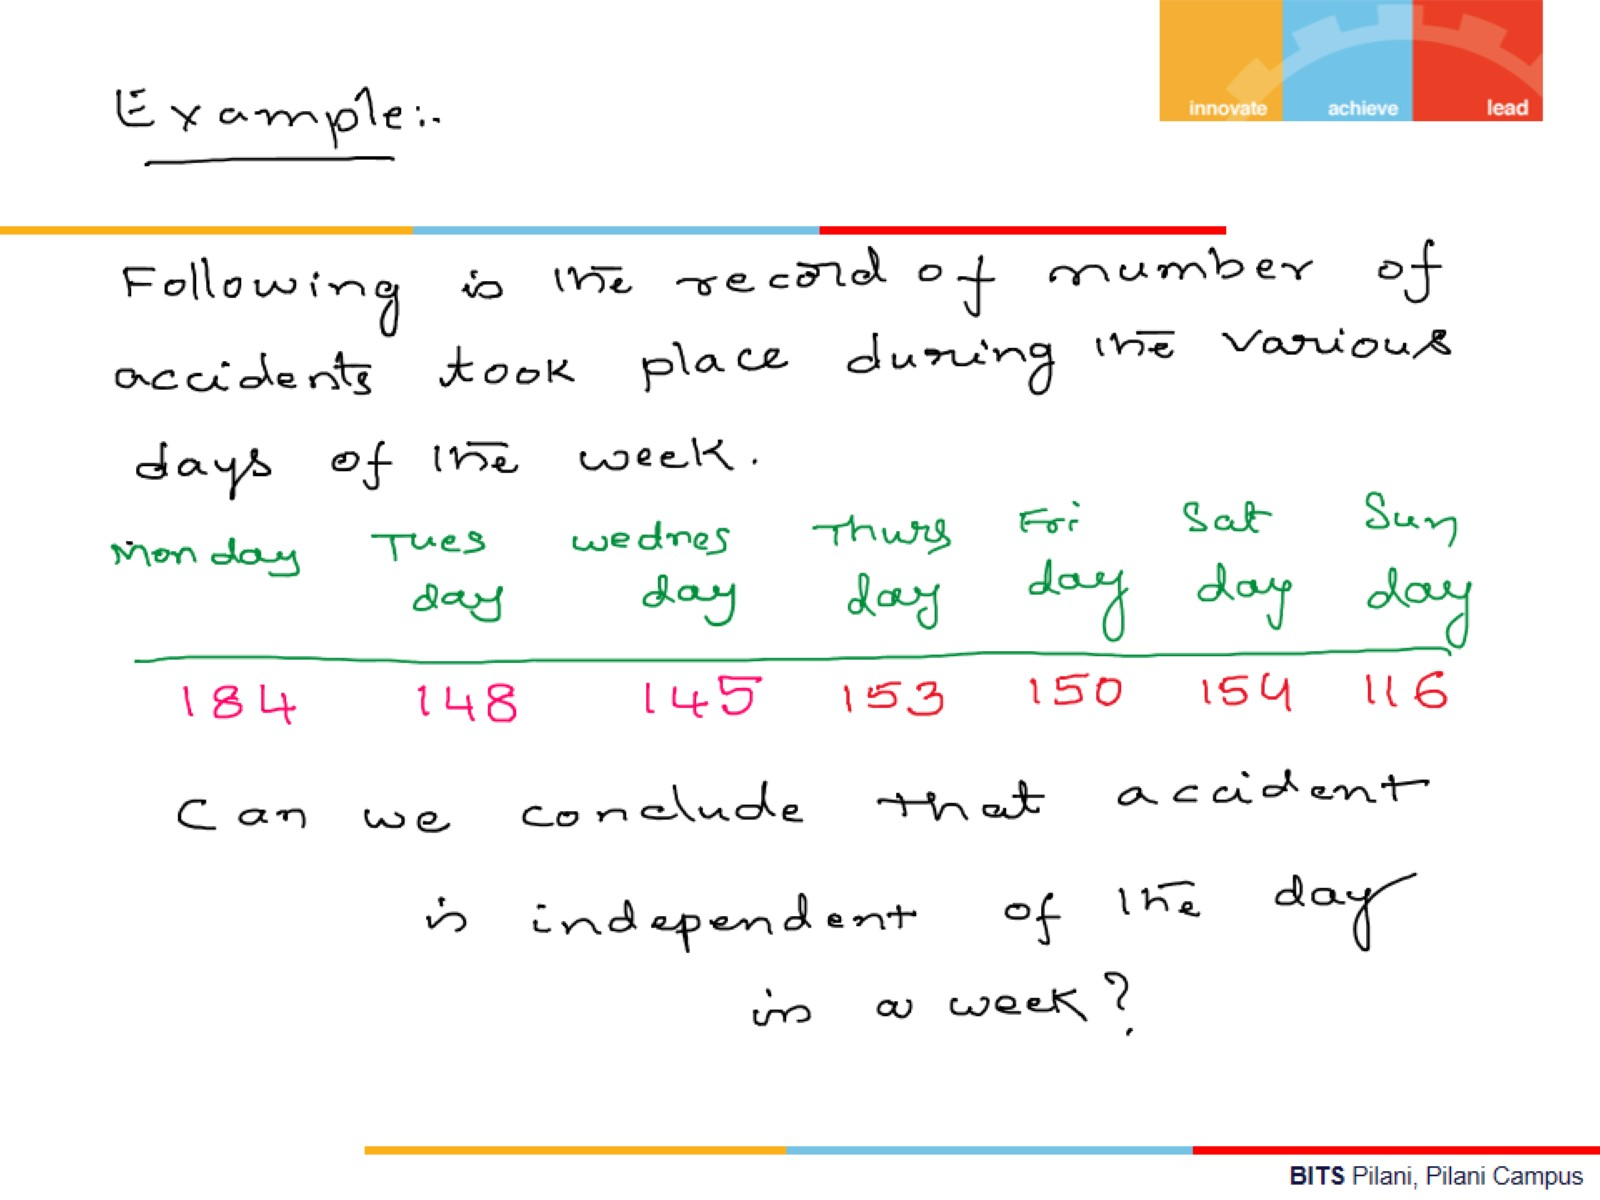 innovate achieve lead
Example:-
Following is the record of number of
accidents took place during the various
days of the week.
Monday Tues Wednes Thurs Fri Sat Sun
day day day day day day
184 148 145 153 150 154 116
Can we conclude that accident
is independent of the day
in a week?
BITS Pilani, Pilani Campus